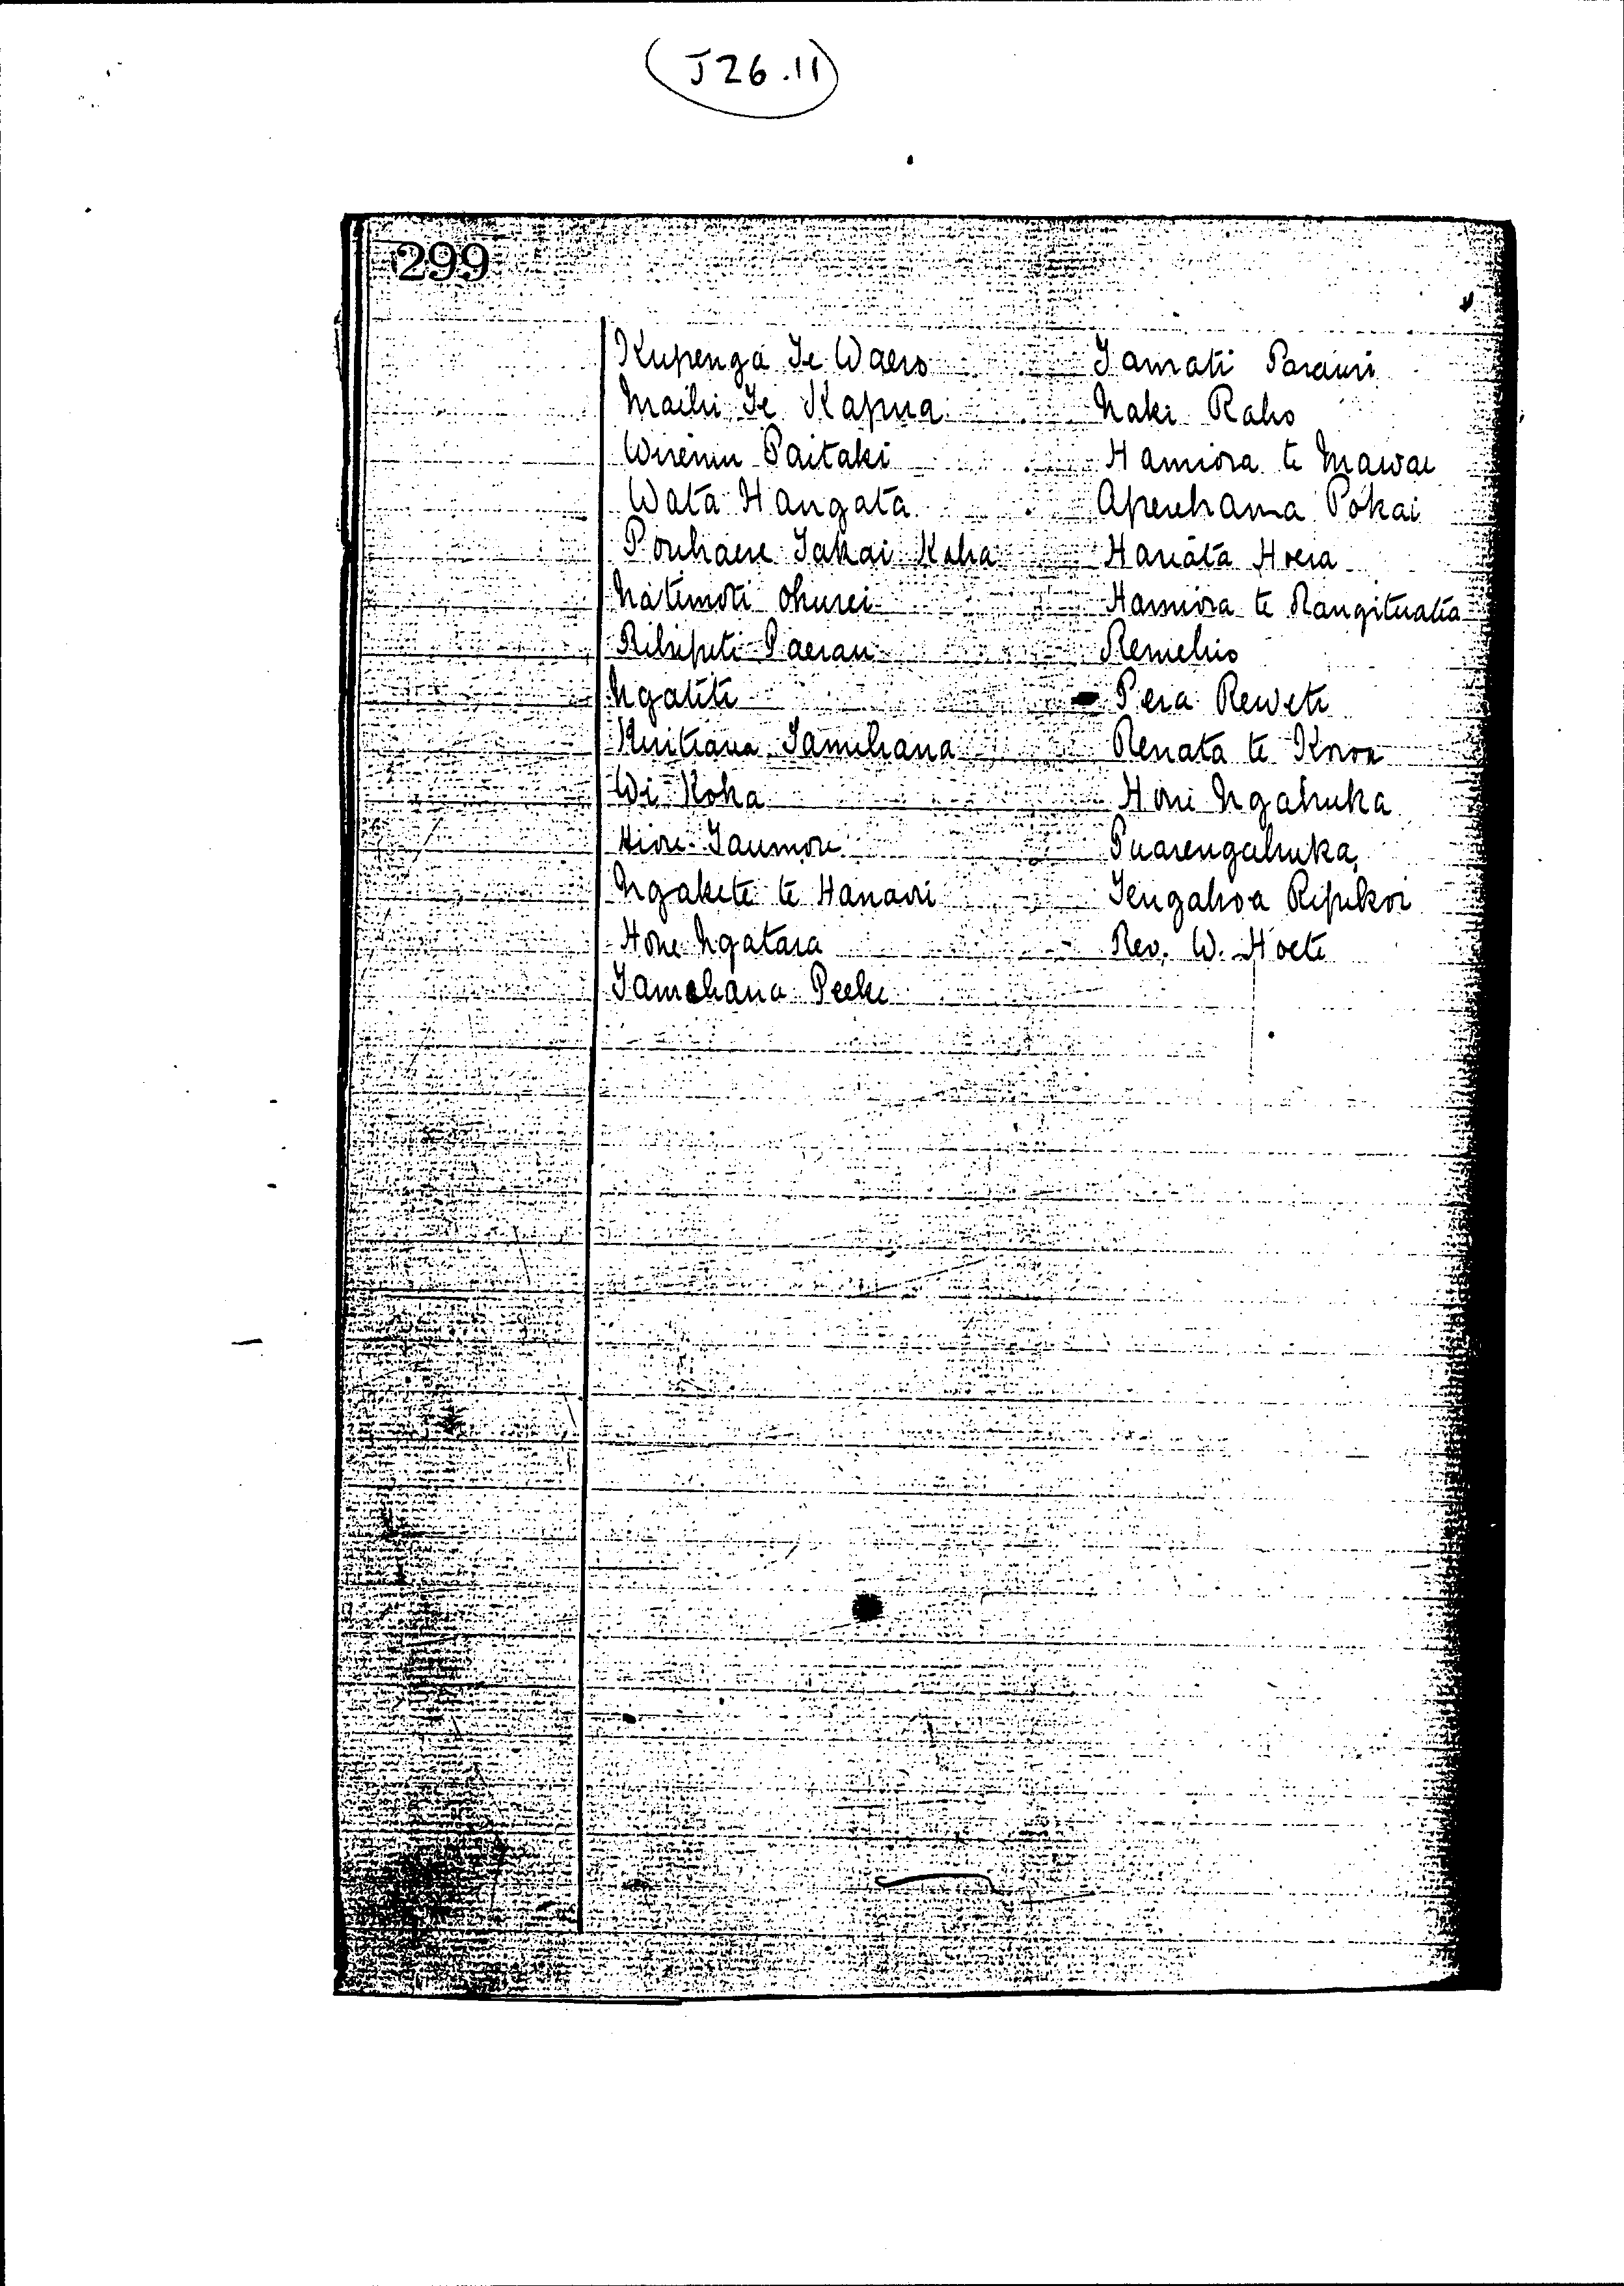 J26.11
299
Kupenga Te Waero Tamati Parauri
Maihi Te Kapua Naki Raho
Wiremu Paitaki Hamiora te Mawae
Wata Hangata Aperehama Pokai
Pouhaere Takai Kaha Hariata Hoera
Natimoti Okurei Hamiora te Rangituatia
Rihipeti Paerau Remehio
Ngatiti Pera Reweti
Kuitiana Tamihana Renata te Koroa
Wi Koka Honi Ngahuka
Hiore Taumore Puarengahuka
Ngakete te Hanauri Tengahoa Ripikoi
Hone Ngatara Rev. W. Hoete
Tamehana Peehi